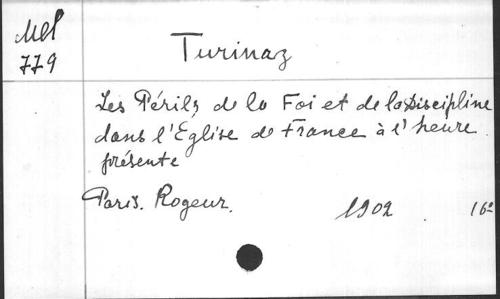 Mel
779
Turinaz
Les Périls de la Foi et de la Discipline
dans l'Eglise de France à l'heure
présente
Paris. Rogeur. 1902 16º